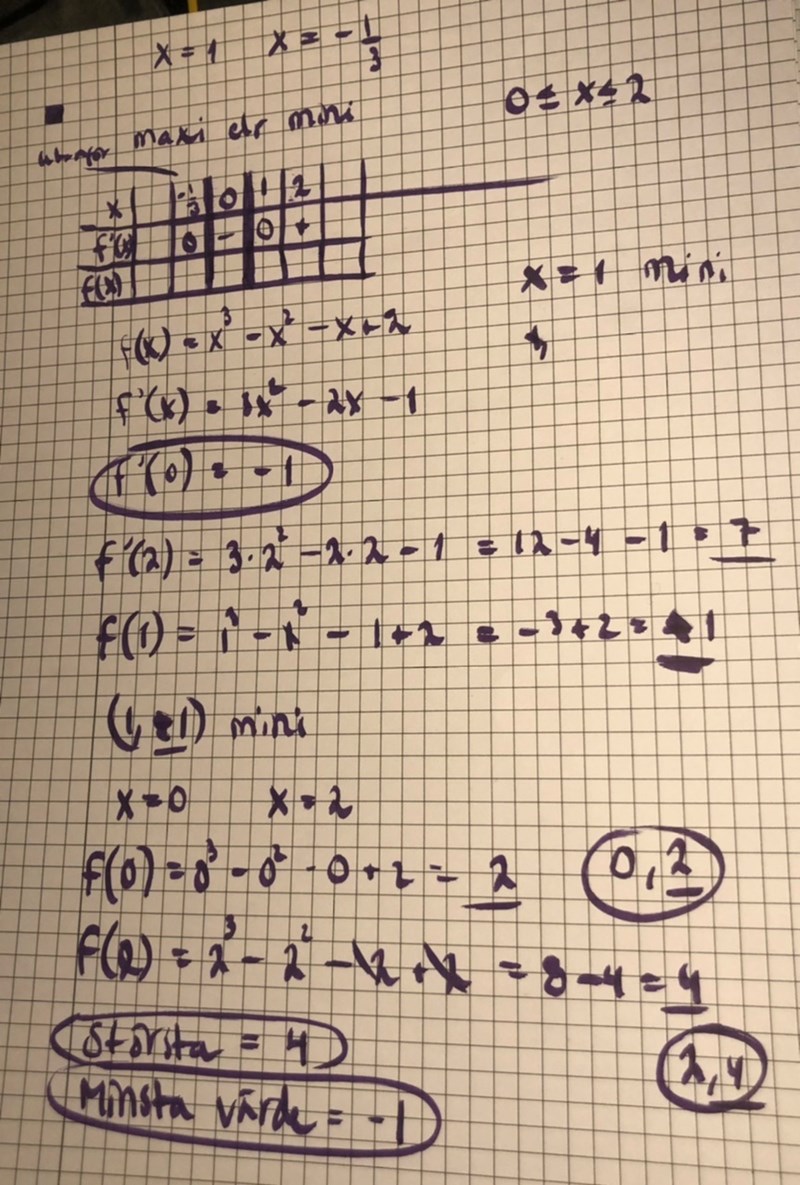 x = 1 x = -1/3
0 ≤ x ≤ 2
maxi elr mini
x -1/3 0 1 2
f'(x) 0 - 0 +
f(x)
x = 1 mini
f(x) = x³ - x² - x + 2
f'(x) = 3x² - 2x - 1
f'(0) = -1
f'(2) = 3·2² - 2·2 - 1 = 12 - 4 - 1 = 7
f(1) = 1³ - 1² - 1 + 2 = -3 + 2 = 1
(1, 1) mini
x = 0 x = 2
f(0) = 0³ - 0² - 0 + 2 = 2 0, 2
f(2) = 2³ - 2² - 2 + 2 = 8 - 4 = 4
Största = 4 2, 4
Minsta värde = -1